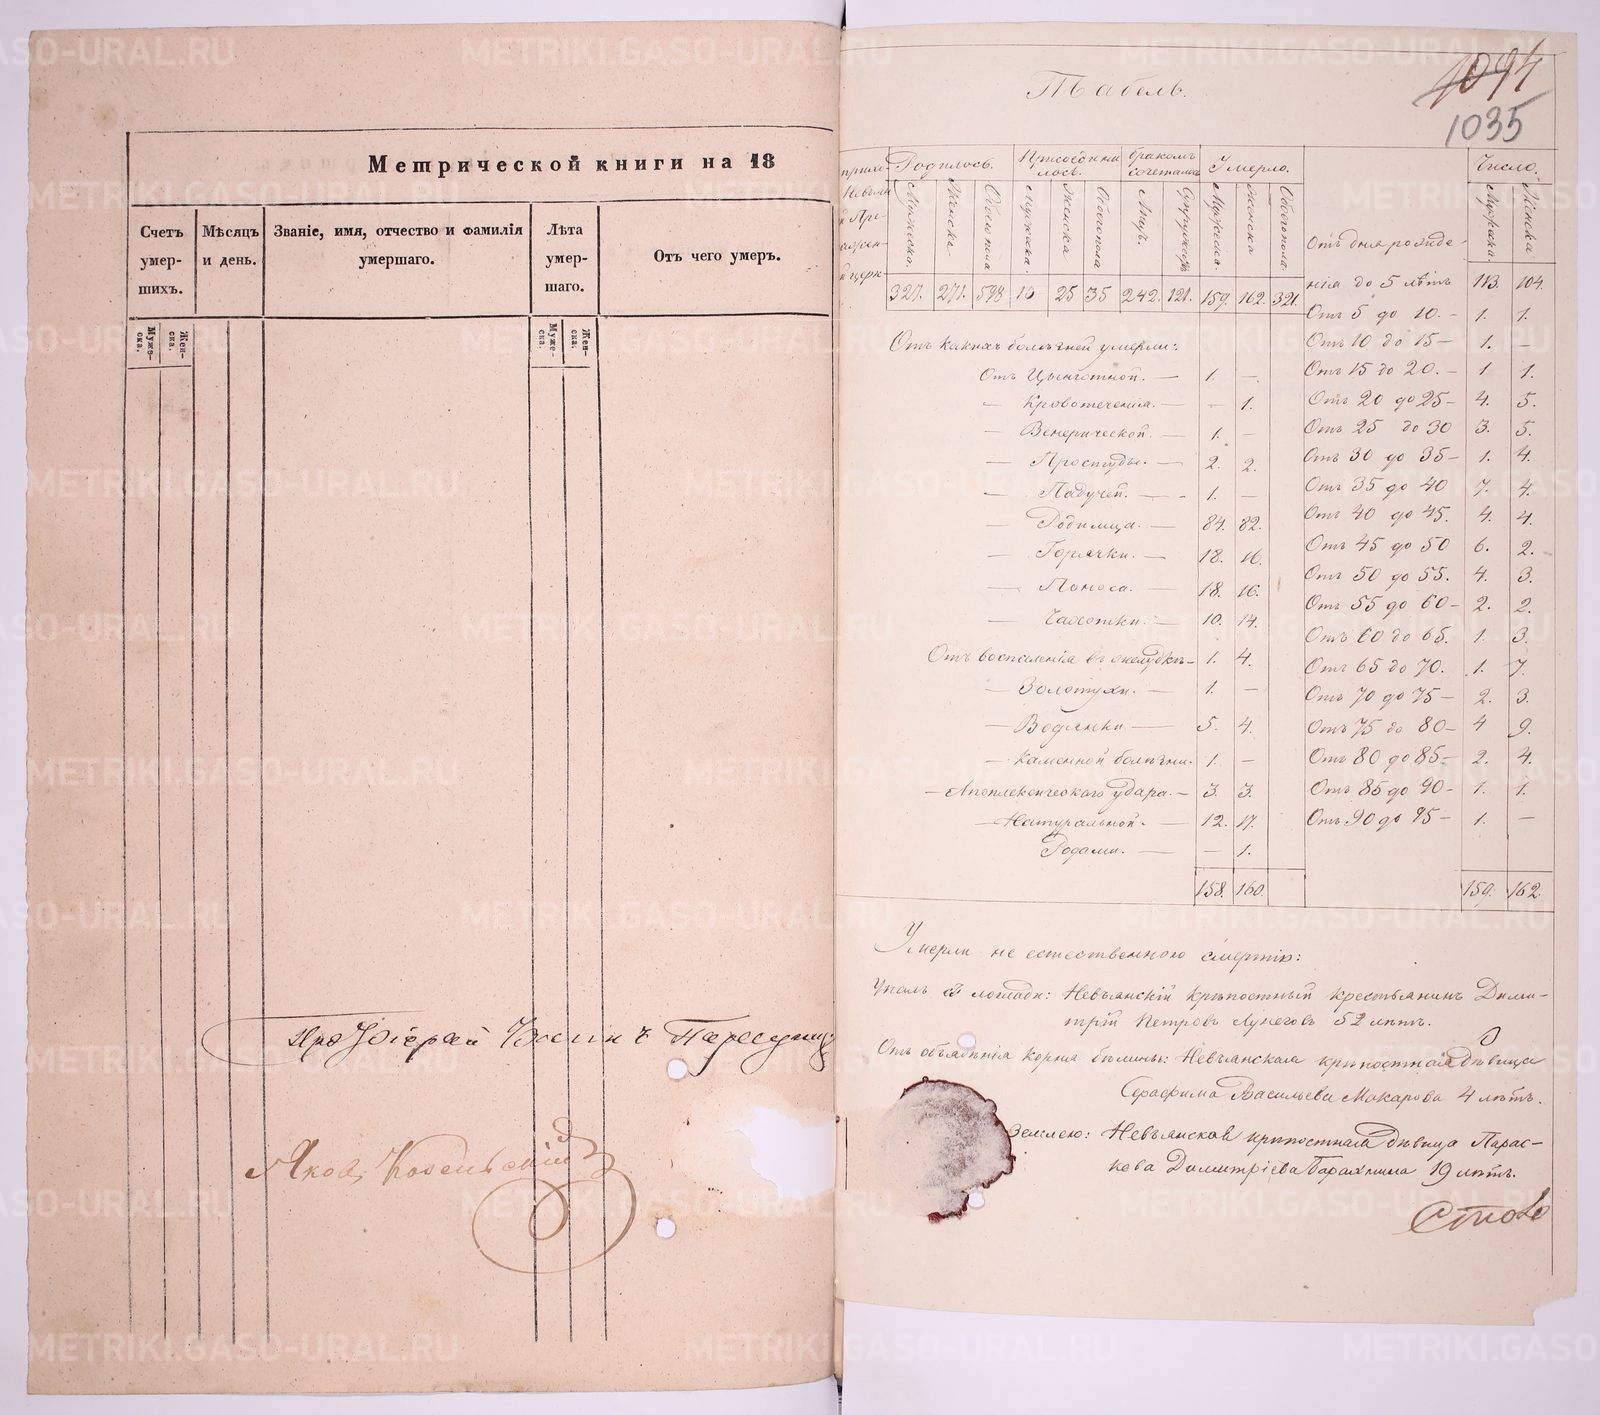 Метрической книги на 18
Счетъ умер- шихъ.
Мѣсяцъ и день.
Званіе, имя, отчество и фамилія умершаго.
Лѣта умер- шаго.
Отъ чего умеръ.
Муже- ска.
Жен- ска.
Муже- ска.
Жен- ска.
Іерей
Яковъ
1094
1035
Табель.
Родилось.
Присоедини лось.
Бракомъ сочеталось
Умерло.
Число.
Мужска.
Женска.
Обоего пола
Мужска.
Женска
Обоего пола
Лицъ.
Супружествъ
Мужска.
Женска
Обоего пола.
Мужска.
Женска
327. 271. 598 10 25 35 242. 121. 159. 162. 321.
Отъ дня рожде-
нія до 5 лѣтъ 113. 104.
Отъ 5 до 10. - 1. 1.
Отъ 10 до 15 - 1. -
Отъ 15 до 20. - 1 1.
Отъ 20 до 25 - 4. 5.
Отъ 25 до 30 3. 5.
Отъ 30 до 35 - 1. 4.
Отъ 35 до 40 7. 4.
Отъ 40 до 45. 4. 4.
Отъ 45 до 50 6. 2.
Отъ 50 до 55. 4. 3.
Отъ 55 до 60 - 2. 2.
Отъ 60 до 65. 1. 3.
Отъ 65 до 70. 1. 7.
Отъ 70 до 75 - 2. 3.
Отъ 75 до 80 - 4 9.
Отъ 80 до 85. - 2. 4.
Отъ 85 до 90 - 1. 1.
Отъ 90 до 95 - 1. -
159. 162.
Отъ какихъ болѣзней умерли:
Отъ Цынготной. - 1. -.
- Кровотеченія. - - 1.
- Венерической. - 1. -
- Простуды. - 2. 2.
- Падучей. - - 1. -
- Родимца. - 84. 82.
- Горячки. - 18. 16.
- Поноса. - 18. 16.
- Чахотки. - 10. 14.
Отъ воспаленія въ желудкѣ - 1. 4.
- Золотухи. - 1. -
- Водянки - 5. 4.
- Каменной болѣзни. 1. -
- Апоплексическаго удара. - 3. 3.
- Натуральной. - 12. 17.
Родами. - - 1.
158. 160.
Умерли не естественною смертію:
Упалъ съ лошади: Невьянскій крѣпостный крестьянинъ Дими-
трій Петровъ Лунеговъ 52 лѣтъ.
Отъ объяденія корня бѣлины: Невьянская крѣпостная дѣвица
Серафима Васильева Макарова 4 лѣтъ.
землею: Невьянская крѣпостная дѣвица Парас-
кева Димитріева 19 лѣтъ.
METRIKI.GASO-URAL.RU